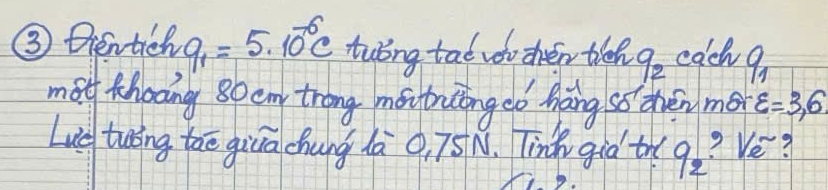 ③ Điện tích q₁ = 5.10⁻⁶C tương tác với điện tích q₂ cách q₁
một khoảng 80cm trong môi trường có hằng số điện môi ε=3,6.
Lực tương tác giữa chúng là 0,75N. Tính giá trị q₂? Vẽ?